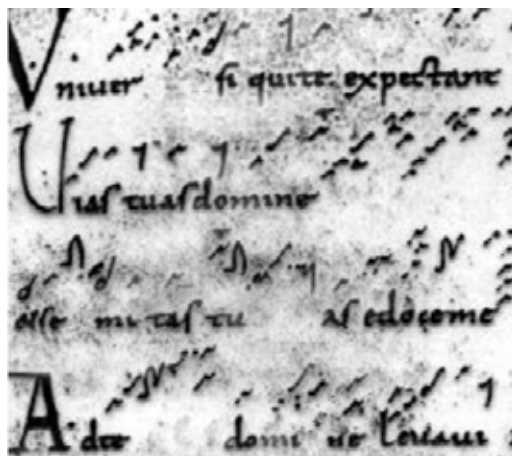 Univer si qui te expectant
Uias tuas domine
esse mi tas tu as edoceme
Adte domi ne leuaui